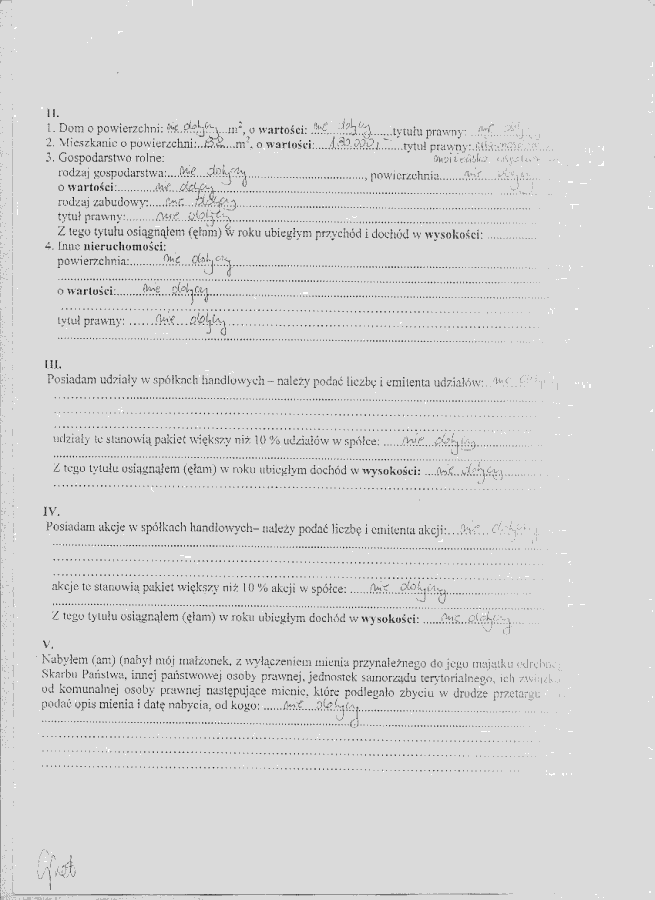 II.
1. Dom o powierzchni: nie dotyczy m², o wartości: nie dotyczy tytułu prawny: nie
2. Mieszkanie o powierzchni: m², o wartości: tytuł prawny:
3. Gospodarstwo rolne:
rodzaj gospodarstwa: nie dotyczy, powierzchnia nie
o wartości: nie dotyczy
rodzaj zabudowy: nie dotyczy
tytuł prawny: nie dotyczy
Z tego tytułu osiągnąłem (ęłam) w roku ubiegłym przychód i dochód w wysokości:
4. Inne nieruchomości:
powierzchnia: nie dotyczy
o wartości: nie dotyczy
tytuł prawny: nie dotyczy
III.
Posiadam udziały w spółkach handlowych – należy podać liczbę i emitenta udziałów: nie
udziały te stanowią pakiet większy niż 10 % udziałów w spółce: nie dotyczy
Z tego tytułu osiągnąłem (ęłam) w roku ubiegłym dochód w wysokości: nie dotyczy
IV.
Posiadam akcje w spółkach handlowych– należy podać liczbę i emitenta akcji: nie dotyczy
akcje te stanowią pakiet większy niż 10 % akcji w spółce: nie dotyczy
Z tego tytułu osiągnąłem (ęłam) w roku ubiegłym dochód w wysokości: nie dotyczy
V.
Nabyłem (am) (nabył mój małżonek, z wyłączeniem mienia przynależnego do jego majątku
Skarbu Państwa, innej państwowej osoby prawnej, jednostek samorządu terytorialnego, ich
od komunalnej osoby prawnej następujące mienie, które podlegało zbyciu w drodze przetargu
podać opis mienia i datę nabycia, od kogo: nie dotyczy